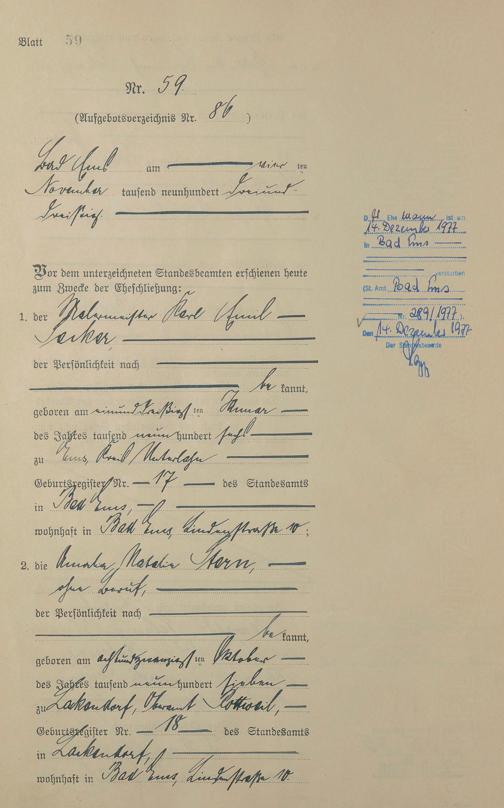 Blatt 59
Nr. 59.
(Aufgebotsverzeichnis Nr. 86)
Bad Ems am vier ten
November tausend neunhundert dreiund-
dreißig.
Vor dem unterzeichneten Standesbeamten erschienen heute
zum Zwecke der Eheschließung:
1. der Malermeister Karl Emil
der Persönlichkeit nach
be kannt,
geboren am einunddreißigsten Januar
des Jahres tausend neun hundert sechs
zu Ems, Kreis Unterlahn
Geburtsregister Nr. 17 des Standesamts
in Bad Ems,
wohnhaft in Bad Ems, Lindenstraße 10;
2. die Amalie Natalie Stern,
ohne Beruf,
der Persönlichkeit nach
be kannt,
geboren am achtundzwanzigsten Oktober
des Jahres tausend neun hundert sieben
zu Lackendorf, Oberamt Rottweil,
Geburtsregister Nr. 18 des Standesamts
in Lackendorf,
wohnhaft in Bad Ems, Lindenstraße 10.
D. Ehemann ist am
14. Dezember 1977
in Bad Ems
verstorben
(St. Amt Bad Ems
Nr. 289/1977).
Den 14. Dezember 1977
Der Standesbeamte